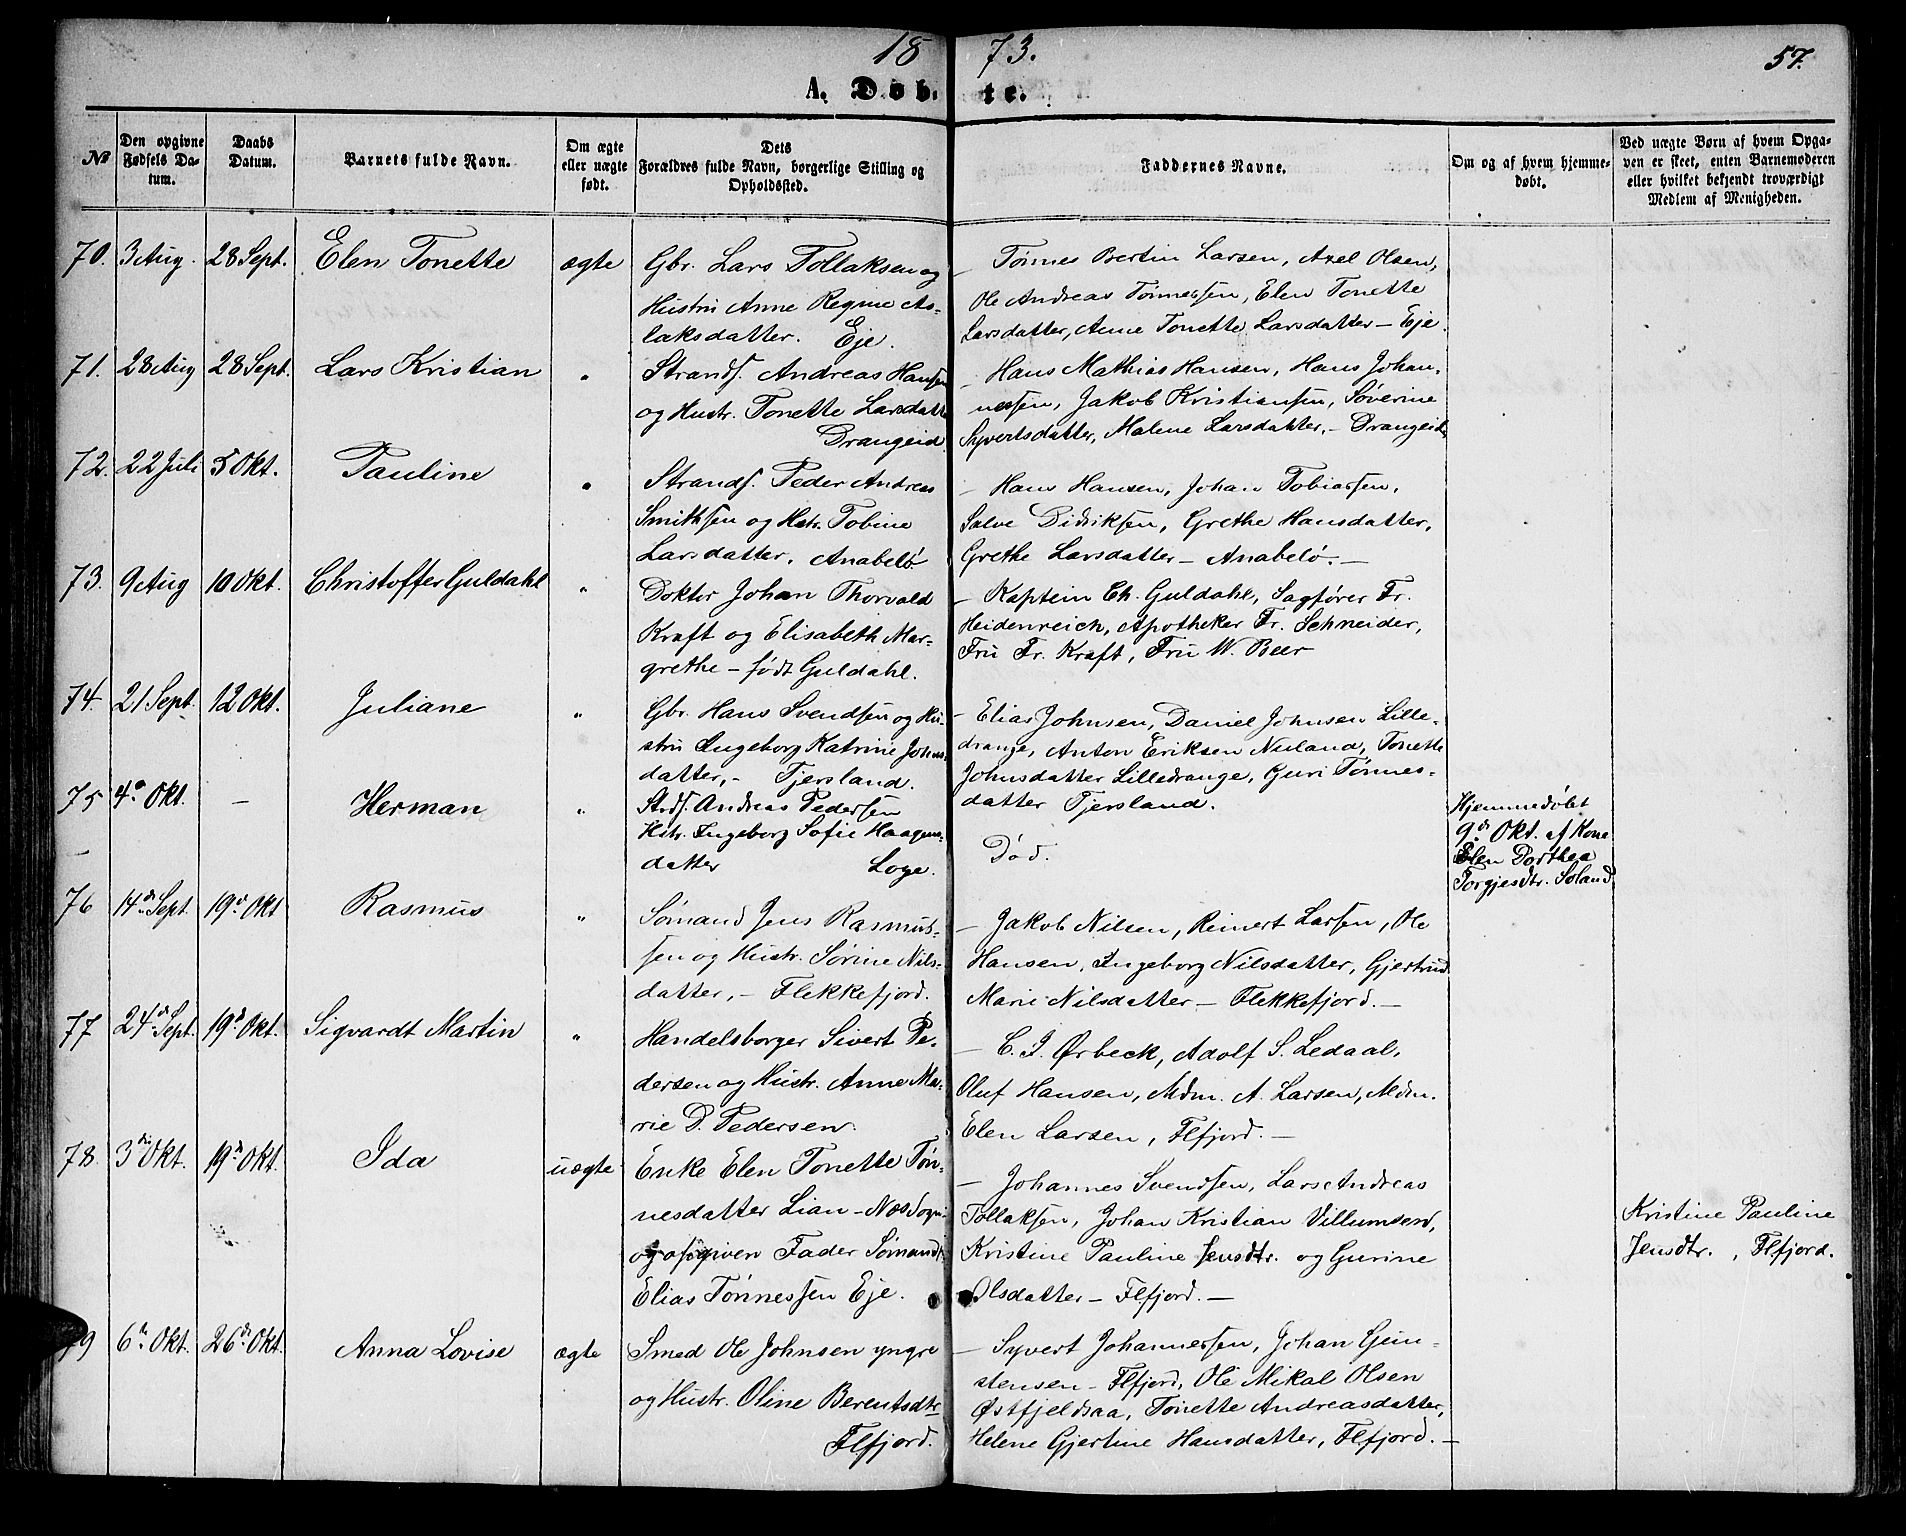 18 73. 57.
A. Døb- te.
No
Den opgivne Fødsels Da-tum.
Daabs Datum.
Barnets fulde Navn.
Om ægte eller uægte født.
Dets Forældres fulde Navn, borgerlige Stilling og Opholdssted.
Faddernes Navne.
Om og af hvem hjemme-døbt.
Ved uægte Børn af hvem Opga-ven er skeet, enten Barnemoderen eller hvilket bekjendt troværdigt Medlem af Menigheden.
70. 3 Aug. 28 Sept. Elen Tonette ægte
Gbr. Lars Tollaksen og
Hustru Anne Regine As-
laksdatter. Eje.
— Tønnes Bertin Larsen, Axel Olsen,
Ole Andreas Tønnessen, Elen Tonette
Larsdatter, Anne Tonette Larsdatter — Eje.
71. 28 Aug 28 Sept. Lars Kristian "
Strands. Andreas Hansen
og Hustr. Tonette Larsdattr
Drangeid
— Hans Mathias Hansen, Hans Johan-
nessen, Jakob Kristiansen, Søverine
Syvertsdatter, Malene Larsdatter, — Drangeid
72. 22 Juli 5 Okt. Pauline "
Strands. Peder Andreas
Smithsen og Hstr. Tobine
Larsdatter, Anabelø
— Hans Hansen, Johan Tobiassen,
Salve Didriksen, Grethe Hansdatter,
Grethe Larsdatter — Anabelø. —
73. 9 Aug 10 Okt. Christoffer Guldahl "
Doktor Johan Thorvald
Kraft og Elisabeth Mar-
grethe — født Guldahl.
— Kaptein Ch. Guldahl, Sagfører Fr.
Heidenreich, Apotheker Fr. Schneider,
Fru Fr. Kraft, Fru W. Beer
74. 21 Sept. 12 Okt. Juliane "
Gbr. Hans Svendsen og Hu-
stru Ingeborg Katrine Johns-
datter, — Tjersland.
— Elias Johnsen, Daniel Johnsen Lille-
drange, Anton Eriksen Nuland, Tonette
Johnsdatter Lilledrange, Guri Tønnes-
datter Tjersland.
75 4de Okt. — Herman "
Strds. Andreas Pedersen
Hstr. Ingeborg Sofie Haagens-
datter Loge.
Død.
Hjemmedøbt
9de Okt. af Kone
Elen Dorthea
Torgjesdtr. Soland
76 14de Sept. 19de Okt Rasmus "
Sømand Jens Rasmus-
sen og Hustr. Sørine Nils-
datter, — Flekkefjord.
— Jakob Nilsen, Reinert Larsen, Ole
Hansen, Ingeborg Nilsdatter, Gjertrud
Marie Nilsdatter — Flekkefjord. —
77 24de Sept. 19de Okt. Sigvardt Martin "
Handelsborger Sivert Pe-
dersen og Hustr. Anne Ma-
rie D. Pedersen.
— C. J. Ørbeck, Adolf S. Ledaal,
Oluf Hansen, Mdm. A. Larsen, Mdm.
Elen Larsen, Flfjord. —
78. 3die Okt. 19de Okt. Ida uægte
Enke Elen Tonette Tøn-
nesdatter Lian — Næs Sogn
og opgiven Fader Sømand
Elias Tønnessen Eje.
— Johannes Svendsen, Lars Andreas
Tollaksen, Johan Kristian Villumsen,
Kristine Pauline Jensdtr. og Gurine
Olsdatter — Flfjord. —
Kristine Pauline
Jensdtr., Flfjord.
79 6te Okt. 26de Okt. Anna Lovise ægte
Smed Ole Johnsen yngre
og Hustr. Oline Berentsdtr
Flfjord.
— Syvert Johannessen, Johan Gun-
stensen — Flfjord, Ole Mikal Olsen
Østfjeldsaa, Tonette Andreasdatter,
Helene Gjertine Hansdatter, Flfjord. —